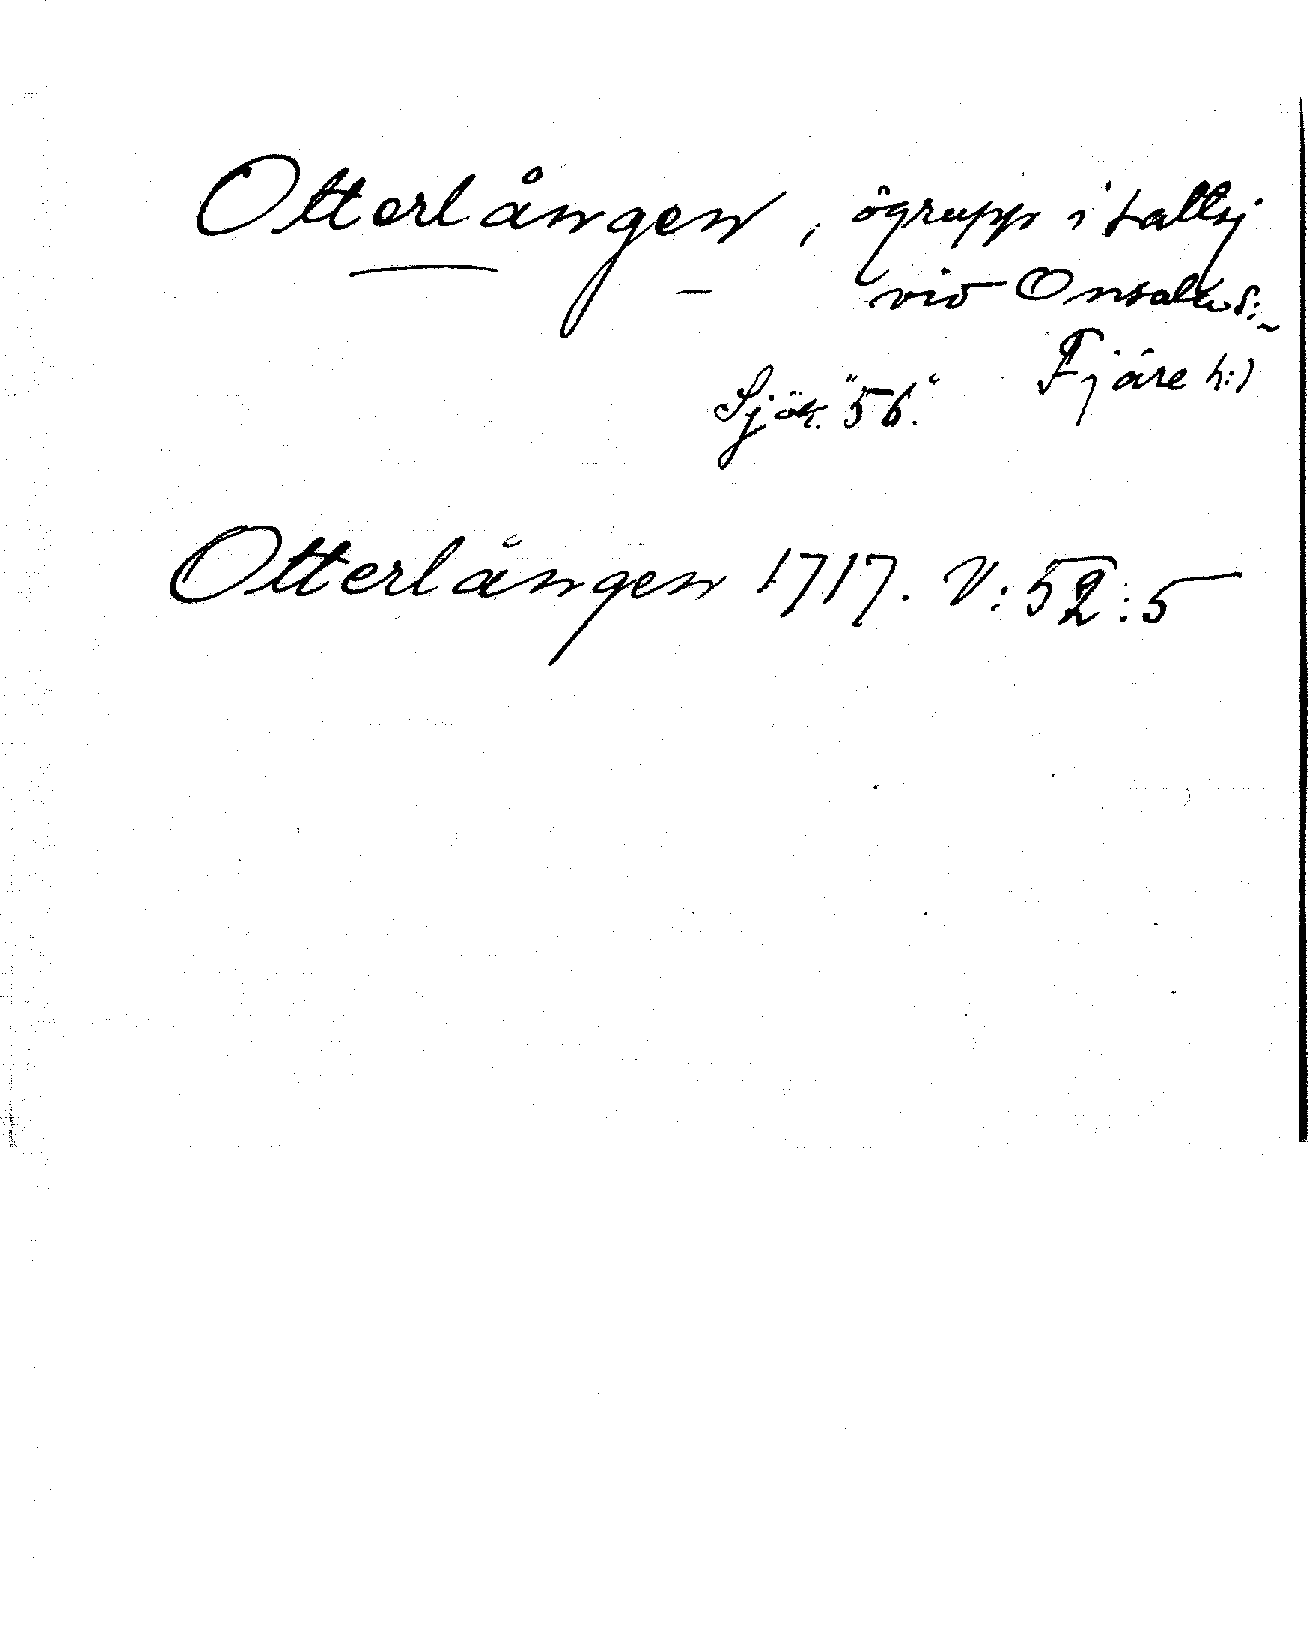 Otterlången, ögrupp i saltsj
vid Onsala s:n
Fjäre h:d
Sjök. "56."
Otterlången 1717. V:52:5